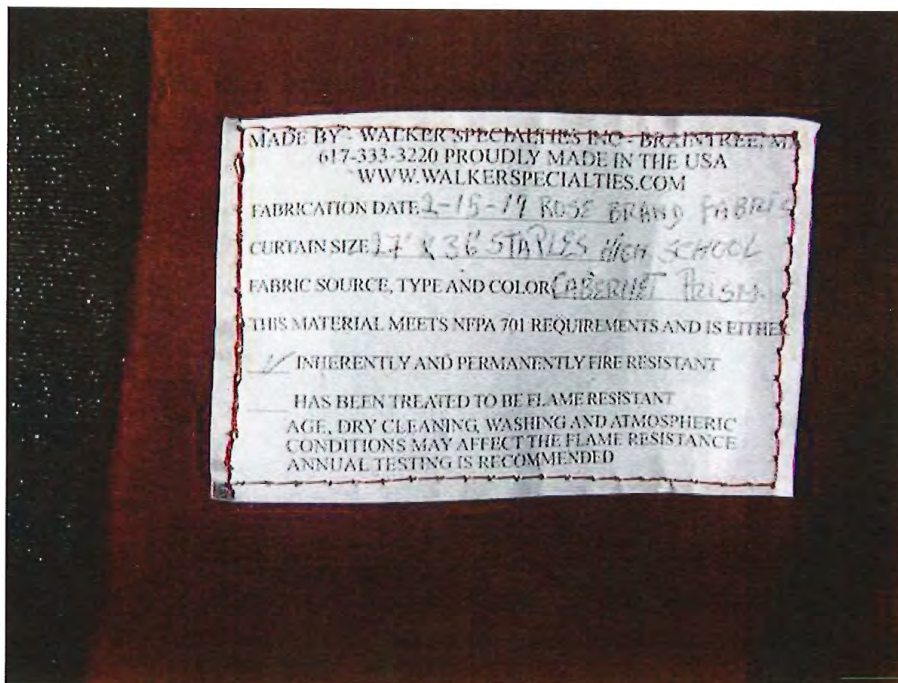 MADE BY - WALKER SPECIALTIES INC - BRAINTREE, MA
617-333-3220 PROUDLY MADE IN THE USA
WWW.WALKERSPECIALTIES.COM
FABRICATION DATE 2-15-19 ROSE BRAND FABRIC
CURTAIN SIZE 27' X 36' STAPLES HIGH SCHOOL
FABRIC SOURCE, TYPE AND COLOR CABERNET PRISM
THIS MATERIAL MEETS NFPA 701 REQUIREMENTS AND IS EITHER
✓ INHERENTLY AND PERMANENTLY FIRE RESISTANT
HAS BEEN TREATED TO BE FLAME RESISTANT
AGE, DRY CLEANING, WASHING AND ATMOSPHERIC
CONDITIONS MAY AFFECT THE FLAME RESISTANCE
ANNUAL TESTING IS RECOMMENDED